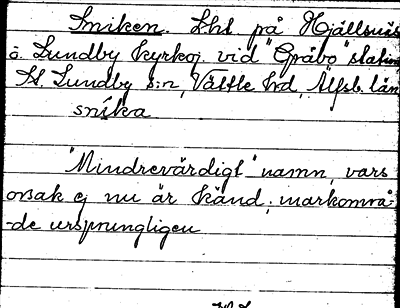 Sniken. Lht. på Hjällsnäs
ö. Lundby kyrkoj. vid "Gråbo" station
St. Lundby s:n, Vättle hrd, Älfsb. län
snika
"Mindrevärdigt" namn, vars
orsak ej nu är känd; markområ-
-de ursprungligen